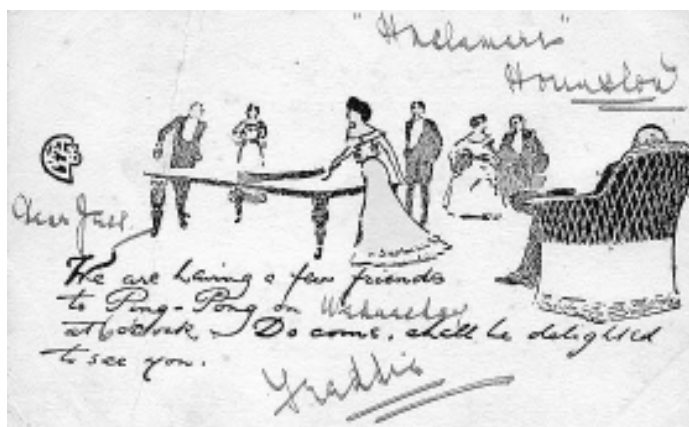 Hounslow
Dear
We are having a few friends
to Ping-Pong on Wednesday
at 6 o'clock. Do come, shall be delighted
to see you.
Freddie